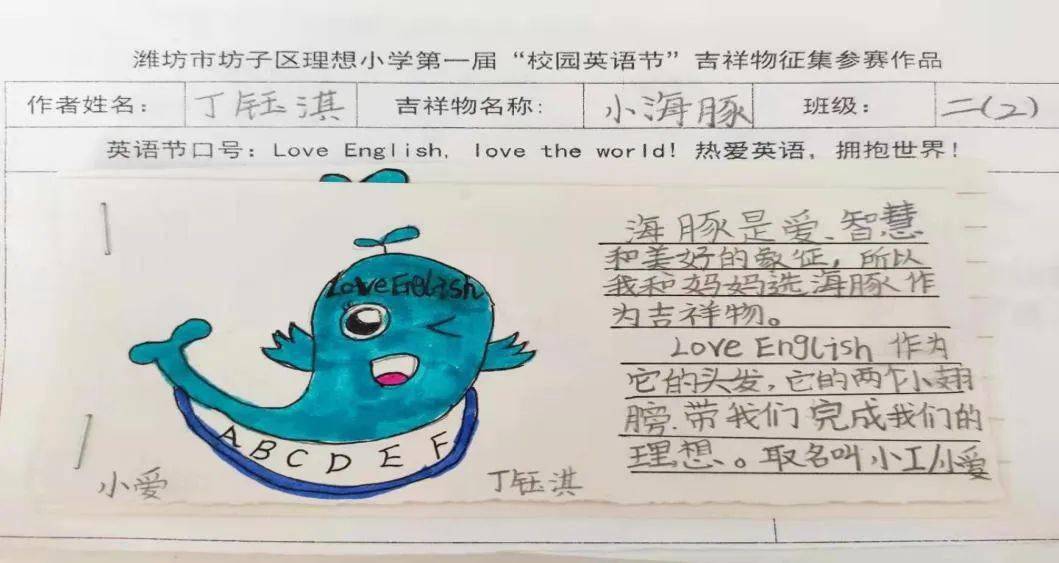 潍坊市坊子区理想小学第一届“校园英语节”吉祥物征集参赛作品
作者姓名： 丁钰淇 吉祥物名称： 小海豚 班级： 二(2)
英语节口号：Love English, love the world! 热爱英语，拥抱世界！
Love English
A B C D E F
小爱
丁钰淇
海豚是爱、智慧
和美好的象征，所以
我和妈妈选海豚作
为吉祥物。
Love English 作为
它的头发，它的两个小翅
膀.带我们完成我们的
理想、。取名叫小工小爱